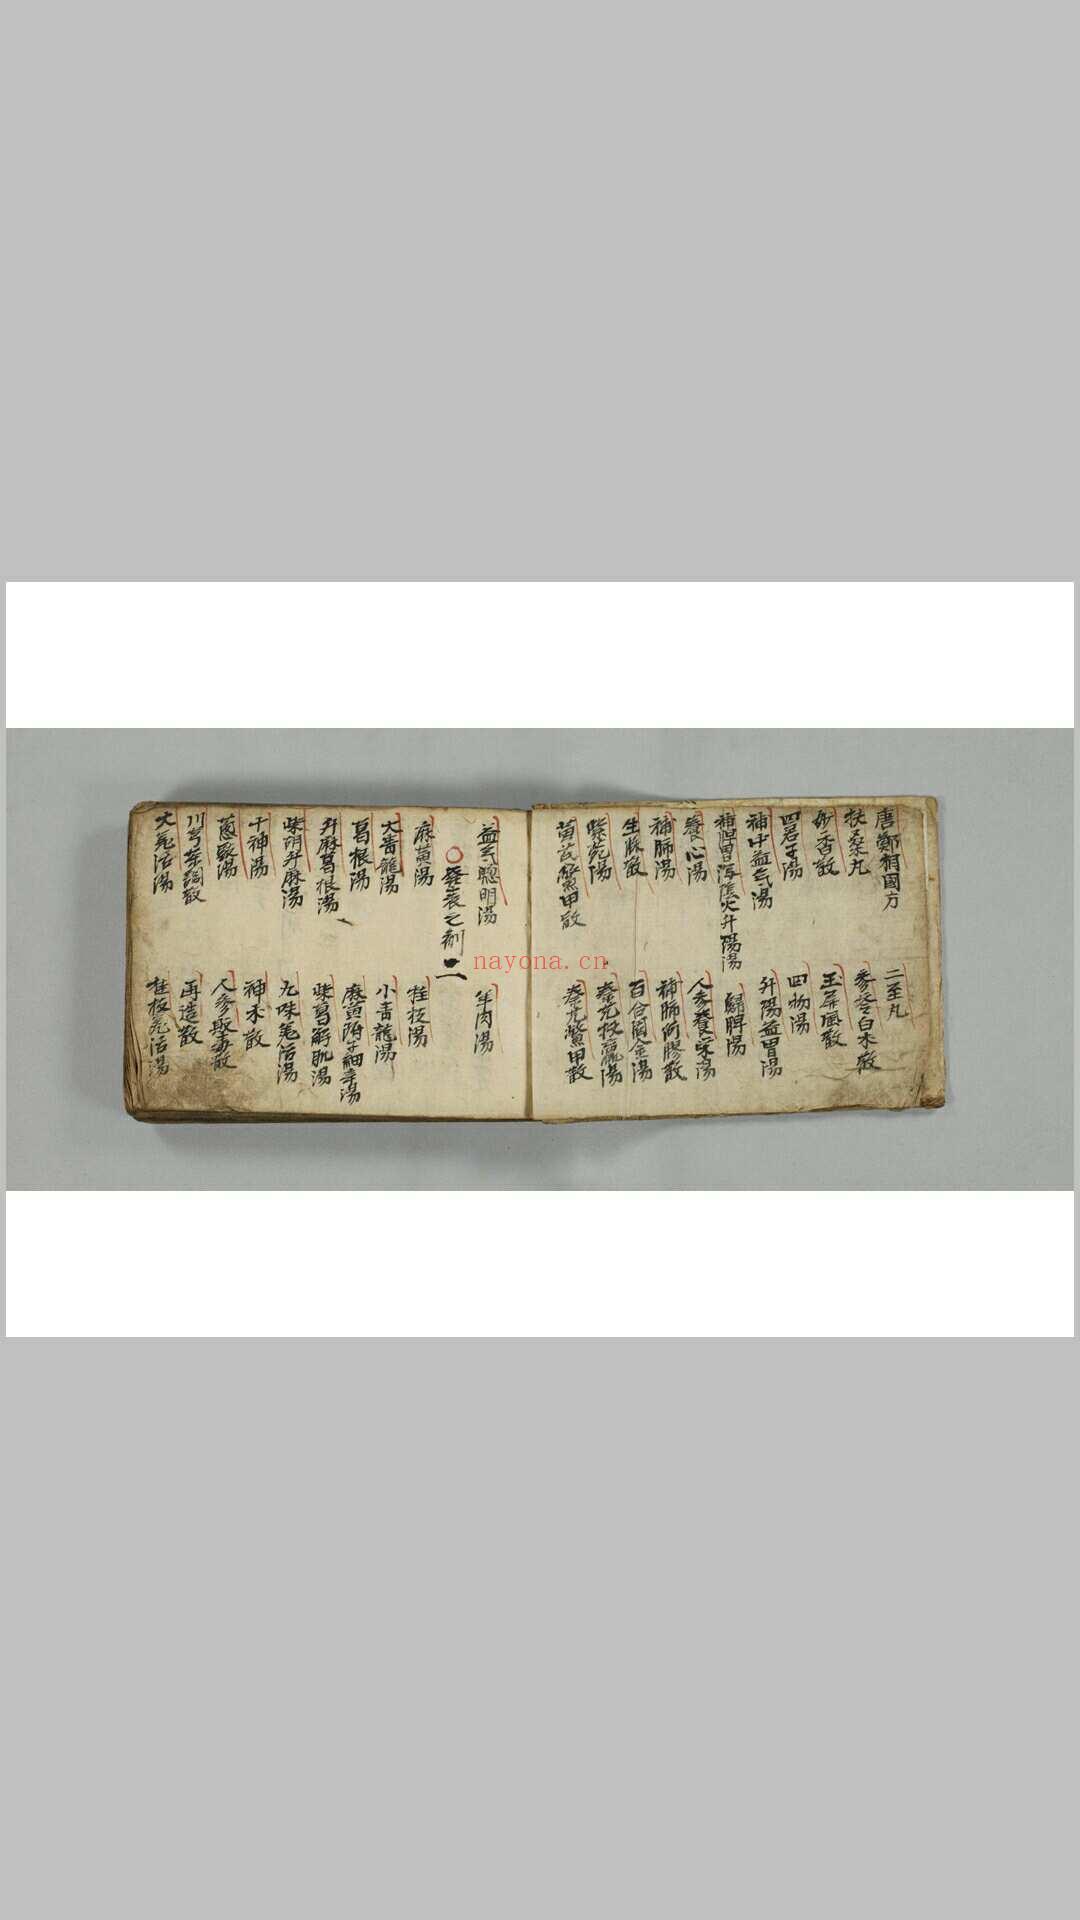 唐鄭相國方
二至丸
扶桑丸
參苓白朮散
妙香散
玉屏風散
四君子湯
四物湯
補中益气湯
升陽益胃湯
補脾胃瀉陰火升陽湯
歸脾湯
養心湯
人參養榮湯
補肺湯
補肺阿膠散
生脉散
百合固金湯
紫菀湯
秦艽扶羸湯
黃芪鱉甲散
秦艽鱉甲散
益气聰明湯
羊肉湯
〇發表之劑二
麻黃湯
桂枝湯
大青龍湯
小青龍湯
葛根湯
麻黃附子細辛湯
升麻葛根湯
柴葛解肌湯
柴胡升麻湯
九味羌活湯
十神湯
神朮散
葱豉湯
人參敗毒散
川芎茶調散
再造散
大羌活湯
桂枝羌活湯
nayona.cn